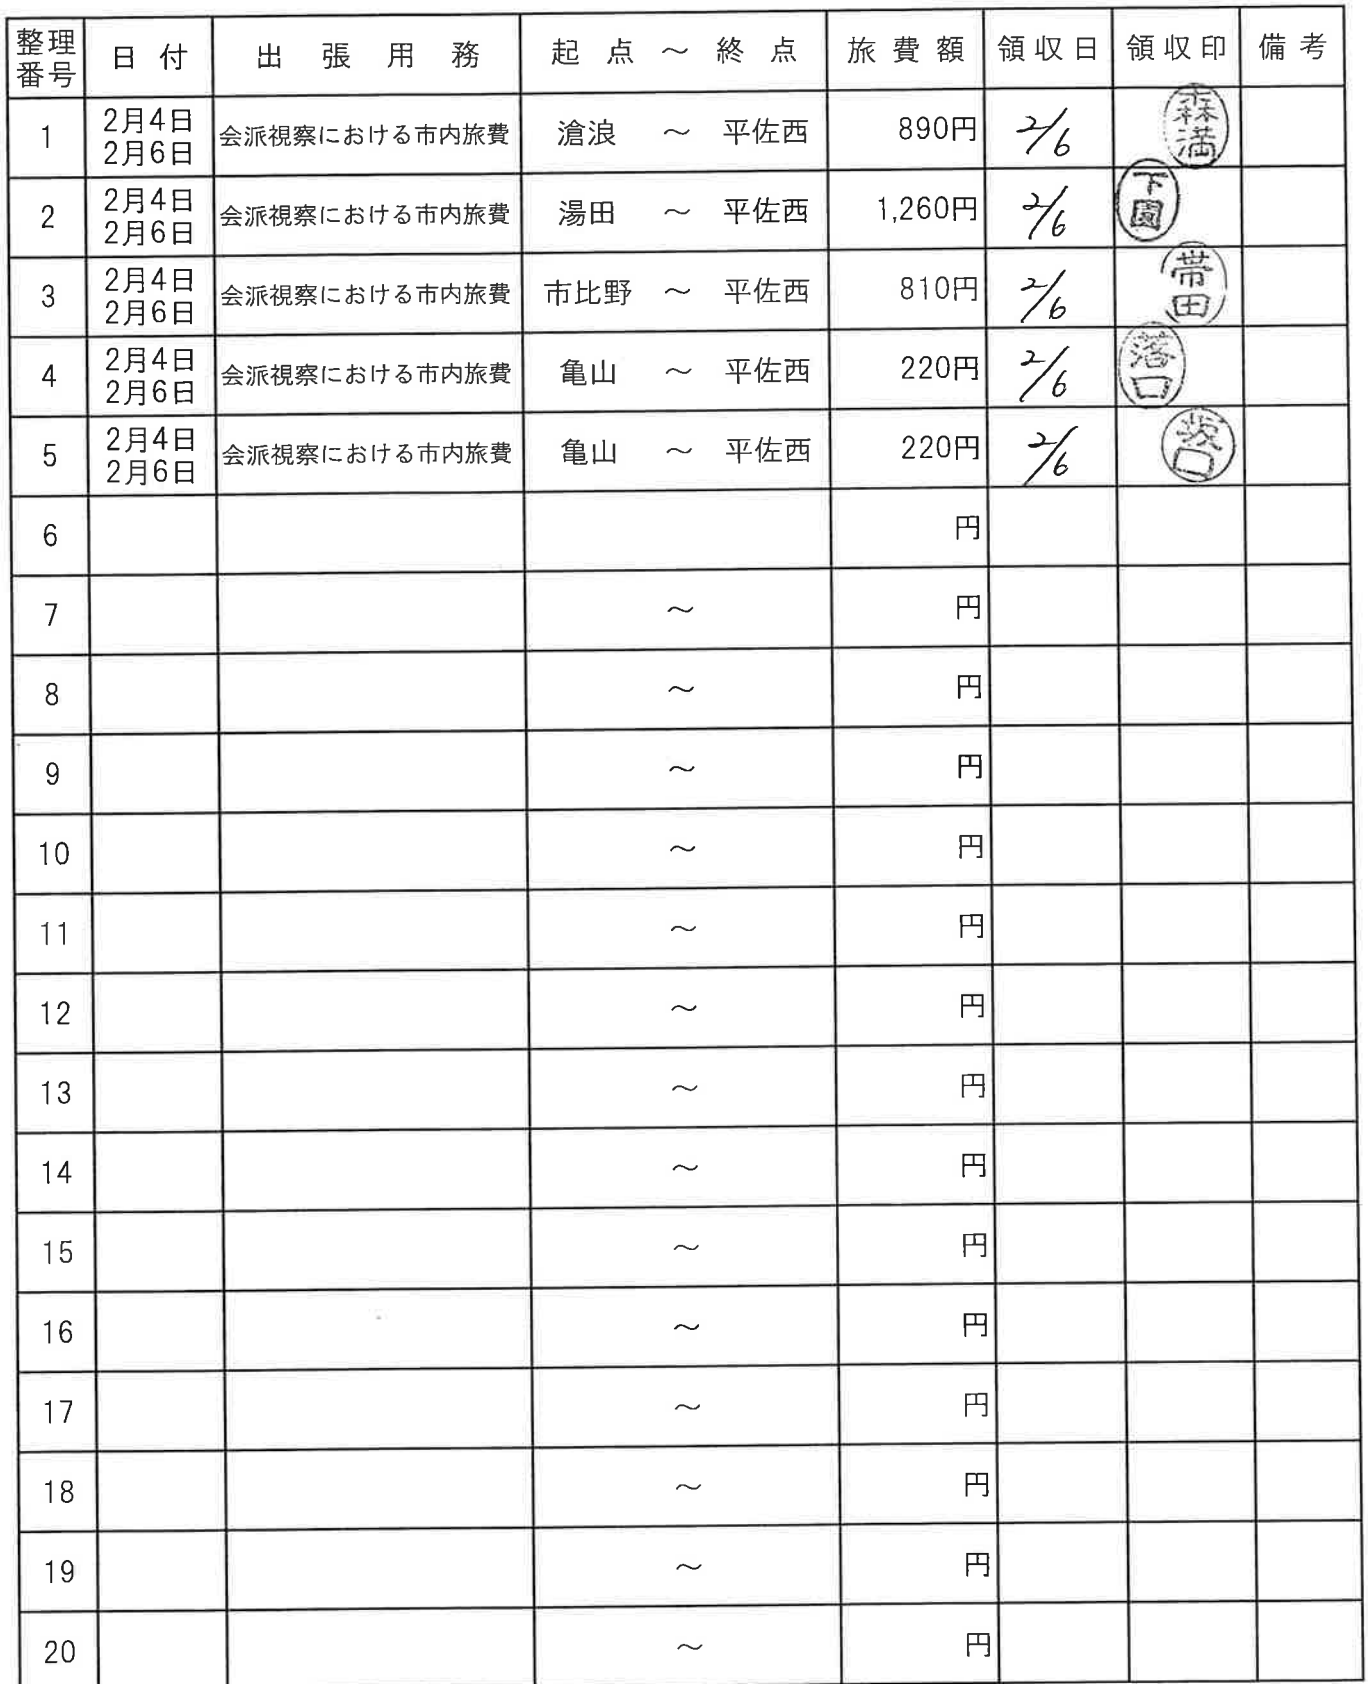 整理番号 日付 出張用務 起点～終点 旅費額 領収日 領収印 備考
1 2月4日 2月6日 会派視察における市内旅費 滄浪 ～ 平佐西 890円 2/6 森満
2 2月4日 2月6日 会派視察における市内旅費 湯田 ～ 平佐西 1,260円 2/6 下園
3 2月4日 2月6日 会派視察における市内旅費 市比野 ～ 平佐西 810円 2/6 帯田
4 2月4日 2月6日 会派視察における市内旅費 亀山 ～ 平佐西 220円 2/6 落口
5 2月4日 2月6日 会派視察における市内旅費 亀山 ～ 平佐西 220円 2/6
6 円
7 ～ 円
8 ～ 円
9 ～ 円
10 ～ 円
11 ～ 円
12 ～ 円
13 ～ 円
14 ～ 円
15 ～ 円
16 ～ 円
17 ～ 円
18 ～ 円
19 ～ 円
20 ～ 円